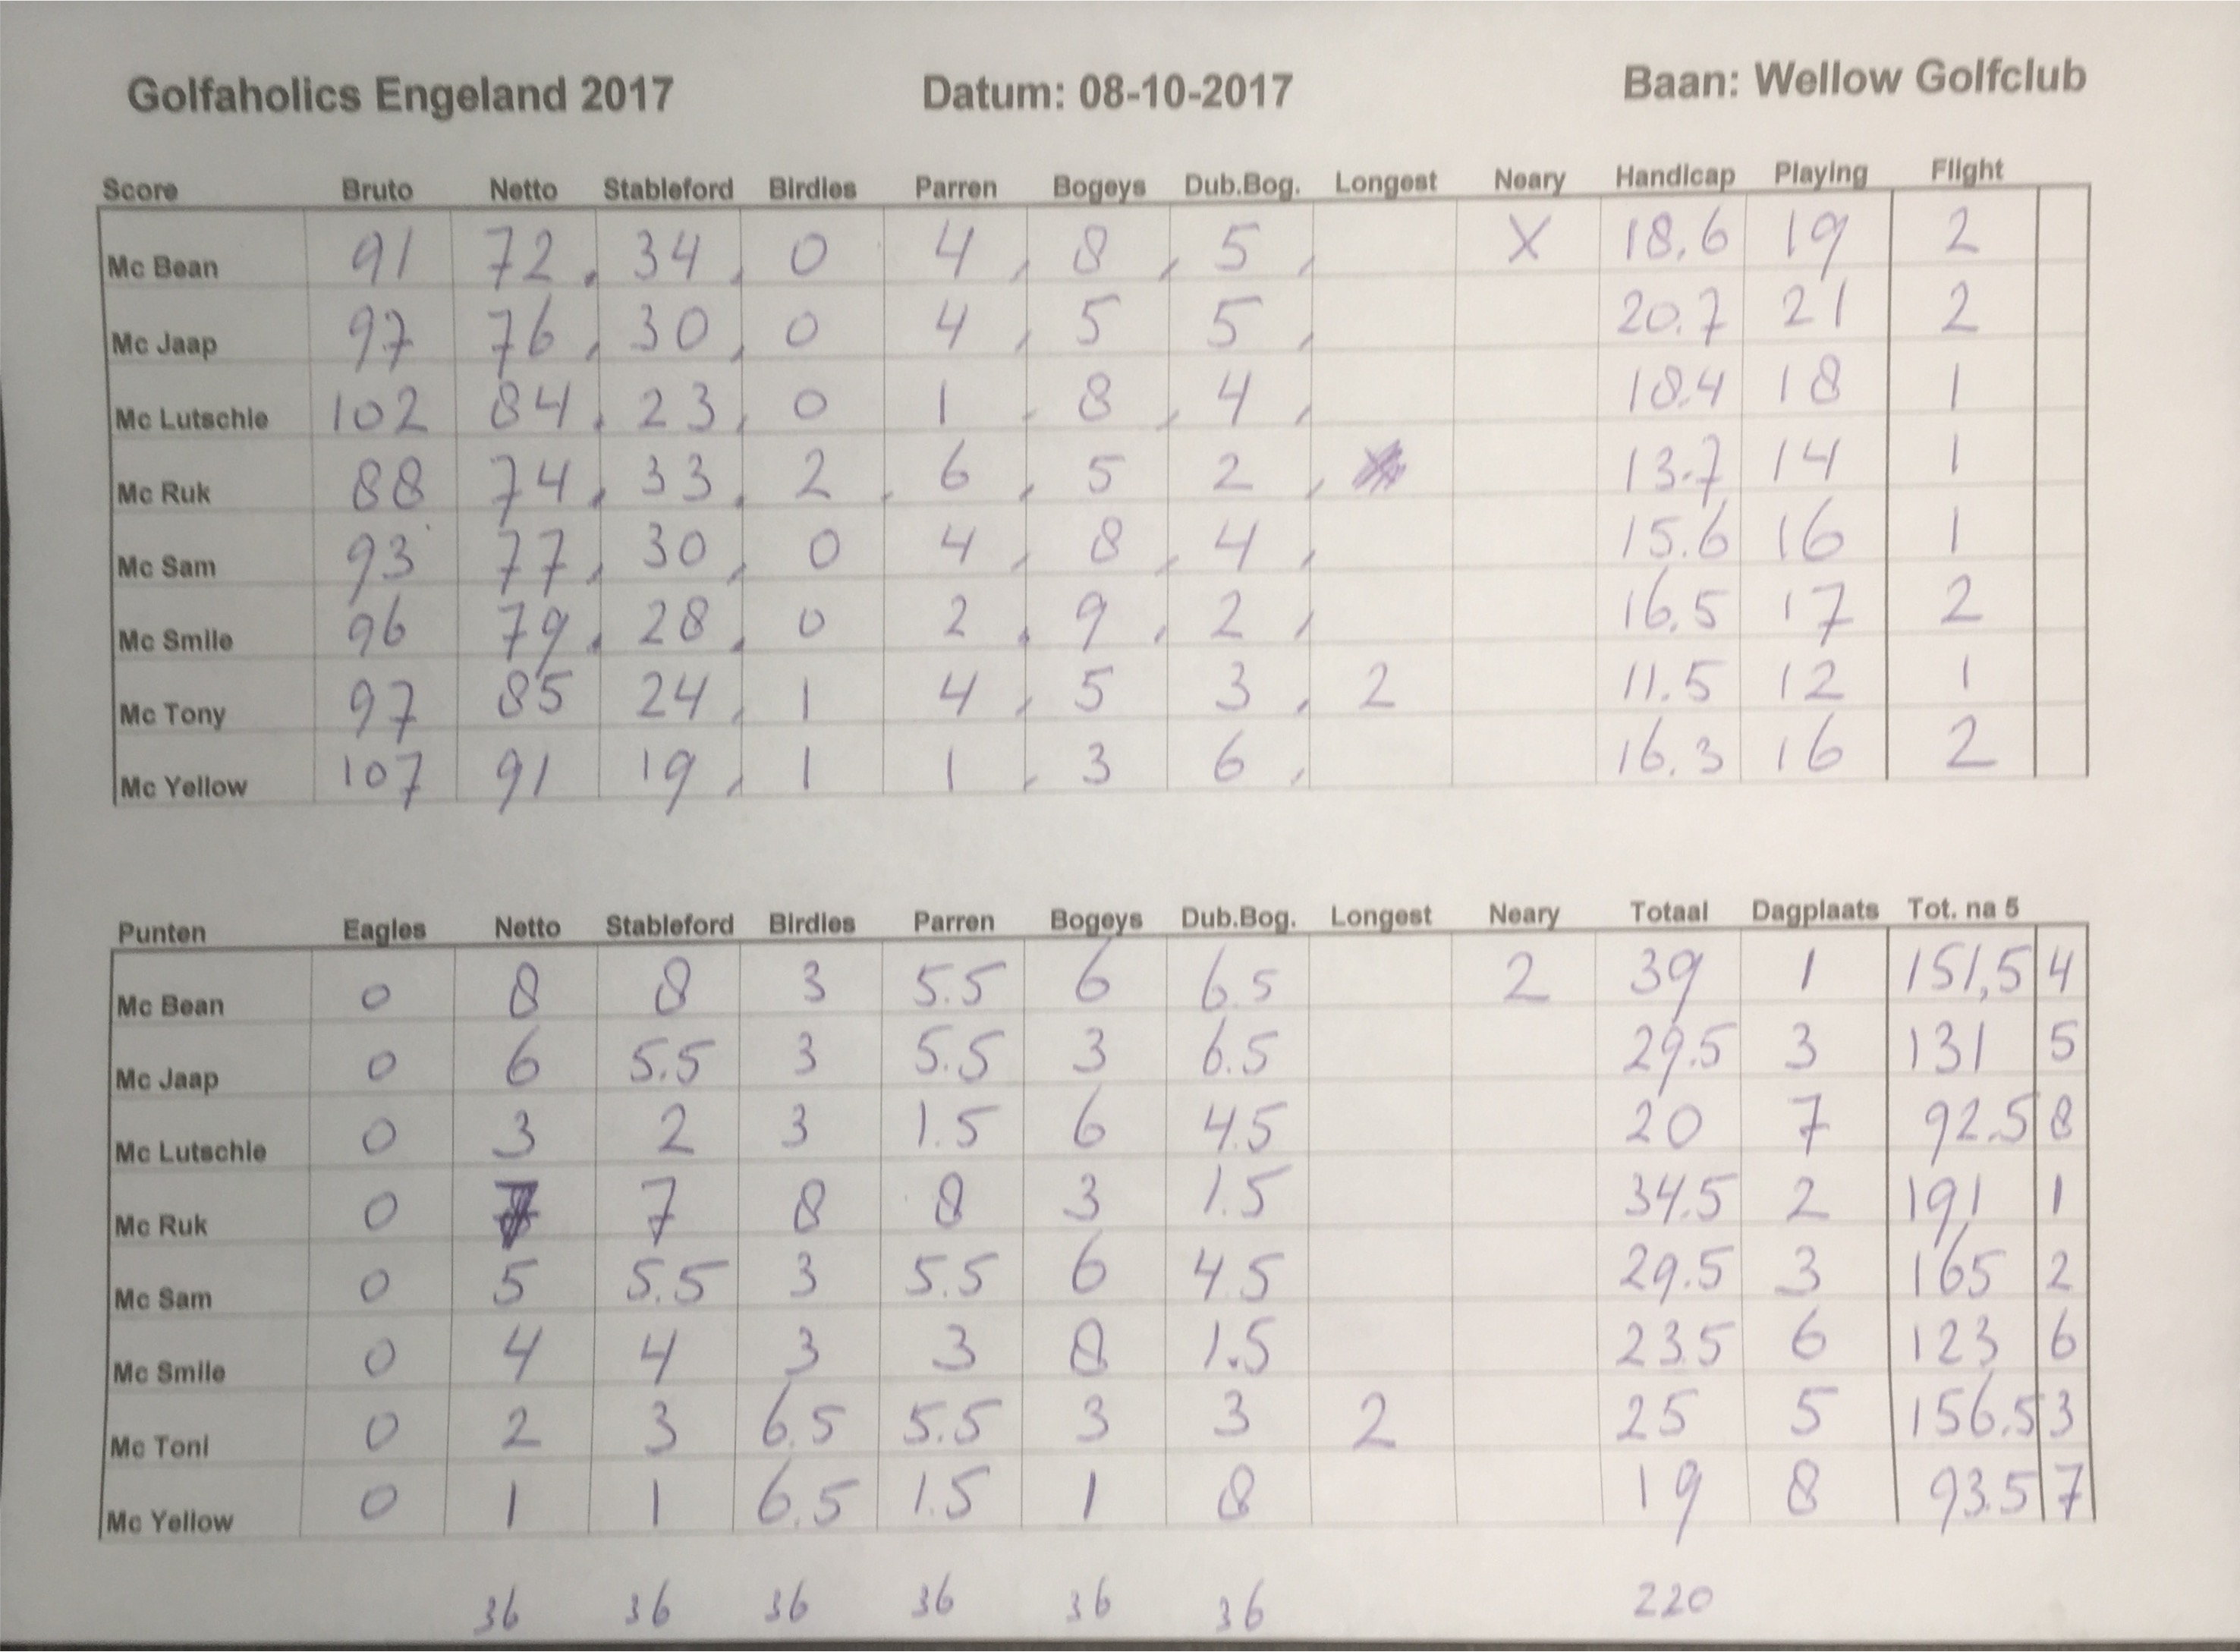 Golfaholics Engeland 2017 Datum: 08-10-2017 Baan: Wellow Golfclub
Score Bruto Netto Stableford Birdies Parren Bogeys Dub.Bog. Longest Neary Handicap Playing Flight
Mc Bean 91 72 34 0 4 8 5 X 18.6 19 2
Mc Jaap 97 76 30 0 4 5 5 20.7 21 2
Mc Lutschie 102 84 23 0 1 8 4 18.4 18 1
Mc Ruk 88 74 33 2 6 5 2 13.7 14 1
Mc Sam 93 77 30 0 4 8 4 15.6 16 1
Mc Smile 96 79 28 0 2 9 2 16.5 17 2
Mc Tony 97 85 24 1 4 5 3 2 11.5 12 1
Mc Yellow 107 91 19 1 1 3 6 16.3 16 2
Punten Eagles Netto Stableford Birdies Parren Bogeys Dub.Bog. Longest Neary Totaal Dagplaats Tot. na 5
Mc Bean 0 8 8 3 5.5 6 6.5 2 39 1 151,5 4
Mc Jaap 0 6 5.5 3 5.5 3 6.5 29.5 3 131 5
Mc Lutschie 0 3 2 3 1.5 6 4.5 20 7 92.5 8
Mc Ruk 0 7 7 8 8 3 1.5 34.5 2 191 1
Mc Sam 0 5 5.5 3 5.5 6 4.5 29.5 3 165 2
Mc Smile 0 4 4 3 3 8 1.5 23.5 6 123 6
Mc Toni 0 2 3 6.5 5.5 3 3 2 25 5 156.5 3
Mc Yellow 0 1 1 6.5 1.5 1 8 19 8 93.5 7
36 36 36 36 36 36 220